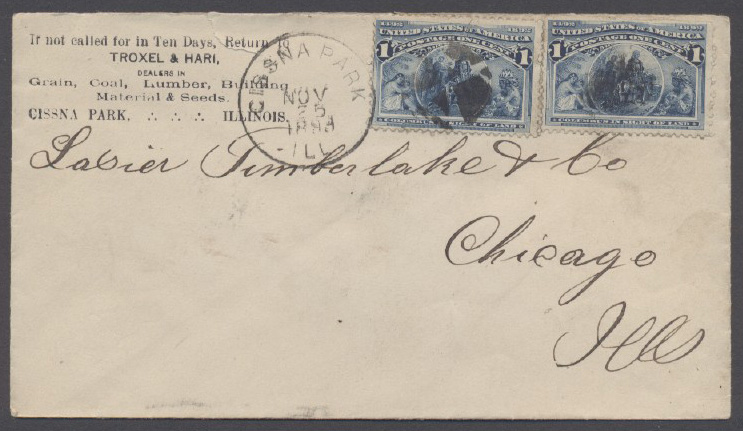 If not called for in Ten Days, Return to
TROXEL & HARI,
DEALERS IN
Grain, Coal, Lumber, Building
Material & Seeds.
CISSNA PARK, ∴ ∴ ∴ ILLINOIS.
CISSNA PARK
NOV
25
1893
-ILL
1492 1892
UNITED STATES OF AMERICA
POSTAGE ONE CENT
1 1
COLUMBUS IN SIGHT OF LAND
1492 1892
UNITED STATES OF AMERICA
POSTAGE ONE CENT
1 1
COLUMBUS IN SIGHT OF LAND
Lasier Timberlake & Co
Chicago
Ills